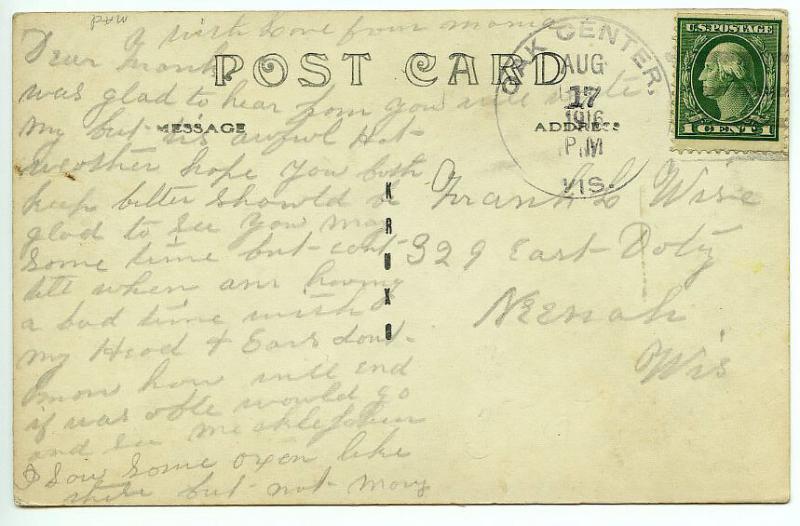 PAW
with love from mama
POST CARD
MESSAGE
ADDRESS
OAK CENTER.
AUG
17
1916
P.M
WIS.
U.S. POSTAGE
1 CENT 1
KRUXO
Dear Frank
was glad to hear from you will write
my but tis awful Hot
weather hope you both
keep better showld be
glad to see you
some time but cant
tell when am having
a bad time with
my Head & Ears dont
how will end
if was able would go
and see
I Saw Some oxen like
these but not
Frank L Wise
329 East Doty
Neenah
Wis